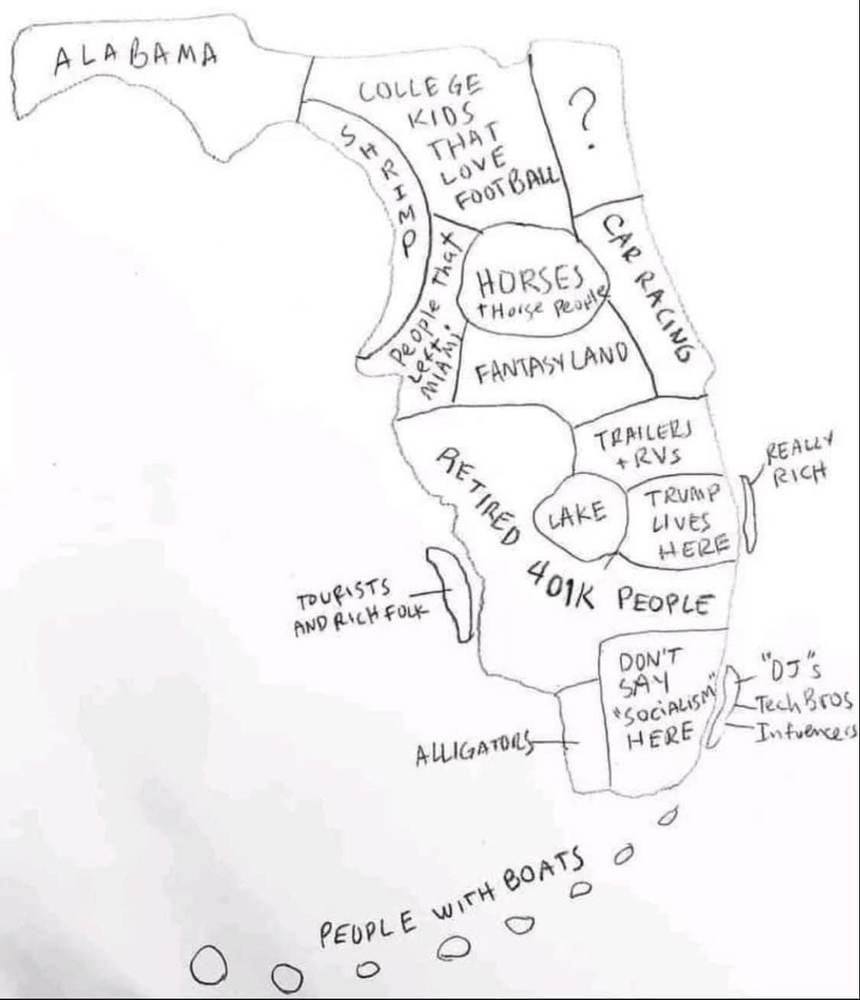 ALABAMA
COLLEGE
KIDS
THAT
LOVE
FOOTBALL
?
SHRIMP
CAR RACING
People That
Left
MIAMI
HORSES
+ Horse People
FANTASY LAND
TRAILERS
+ RVs
REALLY
RICH
RETIRED 401K PEOPLE
LAKE
TRUMP
LIVES
HERE
TOURISTS
AND RICH FOLK
DON'T
SAY
"SOCIALISM"
HERE
"DJ"s
Tech Bros
Infuencers
ALLIGATORS
PEOPLE WITH BOATS